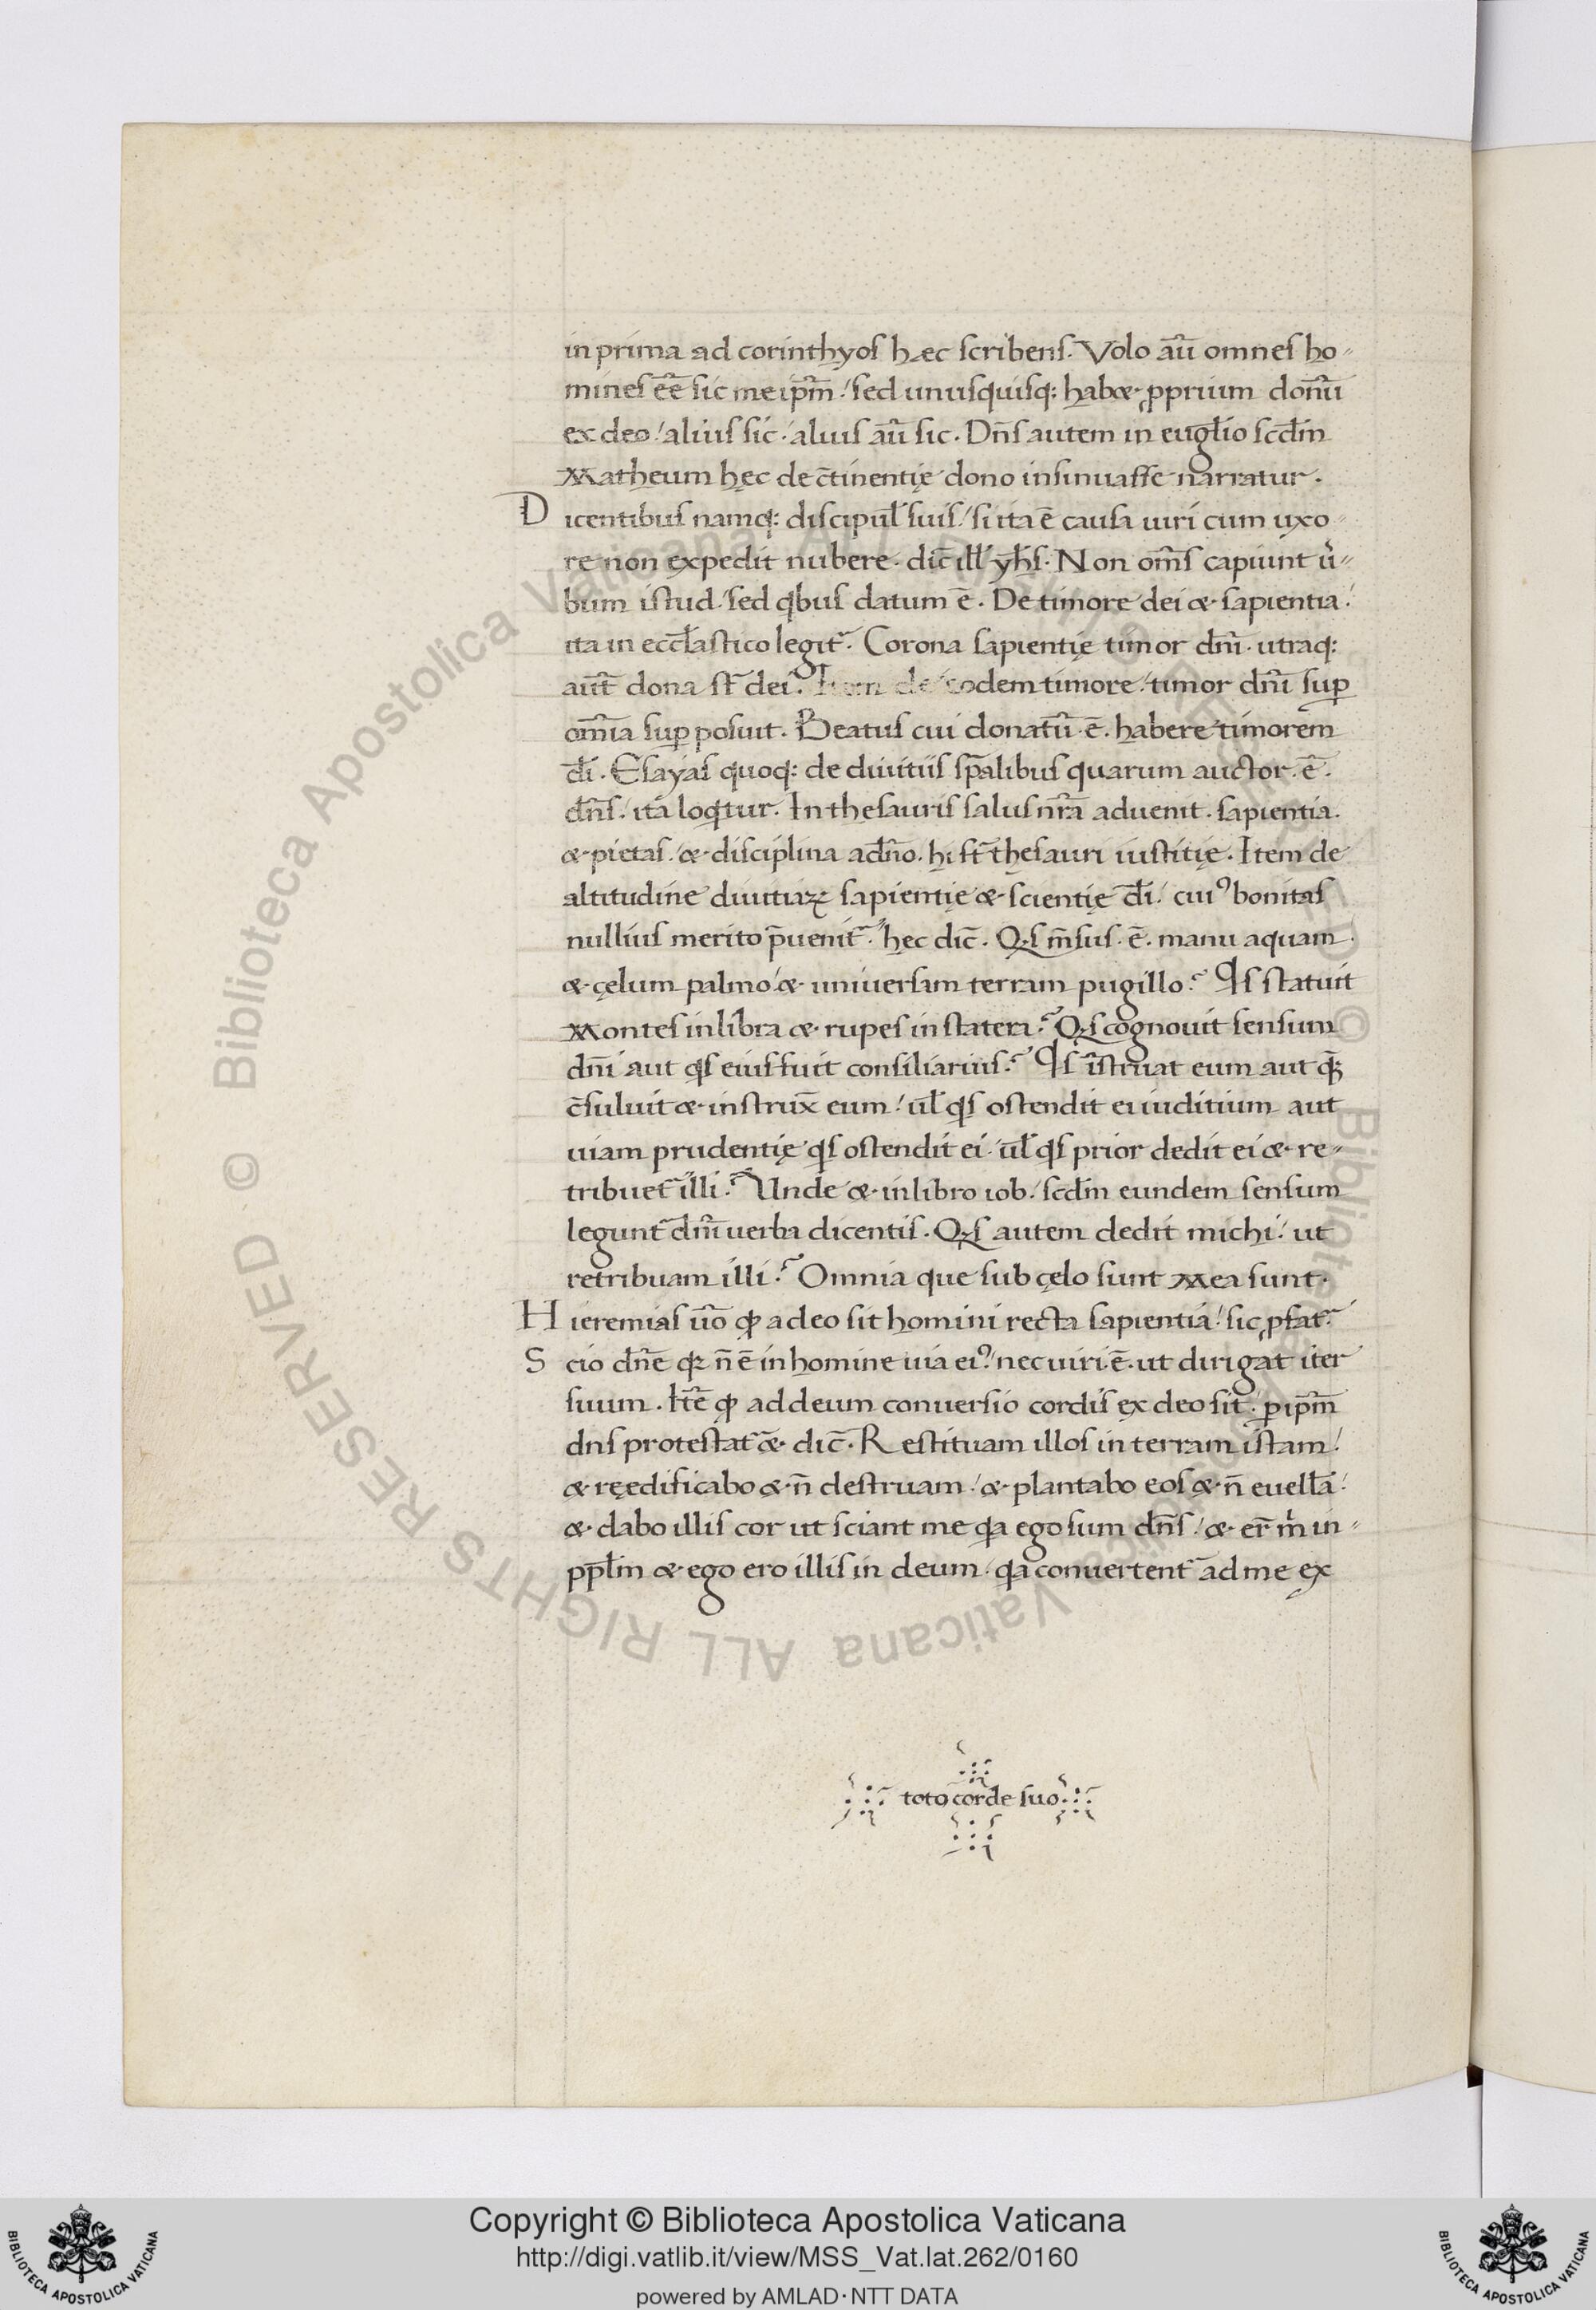 in prima ad corinthyos hæc scribens. Volo aū omnes ho-
mines eē sic me ip̄m / sed unusquisq; habæ p̱prium donū
ex deo / alius sic / alius aū sic. Dn̄s autem in euglio scdm̄
Matheum hęc de c̄tinentię dono insinuasse narratur.
Dicentibus namq; discipul̄ suis / si ita ē causa uiri cum uxo-
re non expedit nubere. dic̄ ill̄ yh̄s. Non om̄s capiunt u̾-
bum istud / sed qbus datum ē. De timore dei & sapientia /
ita in eccl̄astico legit᷑. Corona sapientię timor dn̄i. utraq;
aut̄ dona st̄ dei. Item de eodem timore / timor dn̄i sup̱
om̄ia sup̱posuit. Beatus cui donatū ē. habere timorem
dī. Esayas quoq; de diuitiis sp̄alibus quarum auctor. ē.
dn̄s / ita loqtur. In thesauris salus nr̄a aduenit. sapientia.
& pietas / & disciplina a dn̄o. hi st̄ thesauri iustitię. Item de
altitudine diuitiaꝝ sapientię & scientię dī / cuiꝰ bonitas
nullius merito p̄uenit᷑. hec dic̄. Qs m̄sus. ē. manu aquam
& cęlum palmo / & uniuersam terram pugillo? Qs statuit
Montes in libra & rupes in statera? Qs cognouit sensum
dn̄i aut qs eius fuit consiliarius? Qs īstruat eum aut q̄
c̄suluit & instrux̄ eum / ul̄ qs ostendit ei iuditium aut
uiam prudentię qs ostendit ei / ul̄ qs prior dedit ei & re-
tribuet᷑ illi? Unde & in libro iob / scdm̄ eundem sensum
legunt᷑ dn̄i uerba dicentis. Qs autem dedit michi / ut
retribuam illi? Omnia que sub cęlo sunt Mea sunt.
Hieremias ūo ꝙ a deo sit homini recta sapientia / sic p̱fat᷑
Scio dn̄e qꝛ n̄ ē in homine uia eiꝰ / nec uiri. ē. ut dirigat iter
suum. Itē ꝙ ad deum conuersio cordis ex deo sit / p̱ ip̄m
dns protestat᷑ & dic̄. Restituam illos in terram istam /
& reędificabo & n̄ destruam / & plantabo eos & n̄ euellā /
& dabo illis cor ut sciant me qa ego sum dn̄s / & er̄ m̍ in-
ppl̄m & ego ero illis in deum / qa conuertent᷑ ad me ex
toto corde suo
© Biblioteca Apostolica Vaticana ALL RIGHTS RESERVED
Copyright © Biblioteca Apostolica Vaticana
http://digi.vatlib.it/view/MSS_Vat.lat.262/0160
powered by AMLAD·NTT DATA
BIBLIOTECA APOSTOLICA VATICANA
BIBLIOTECA APOSTOLICA VATICANA